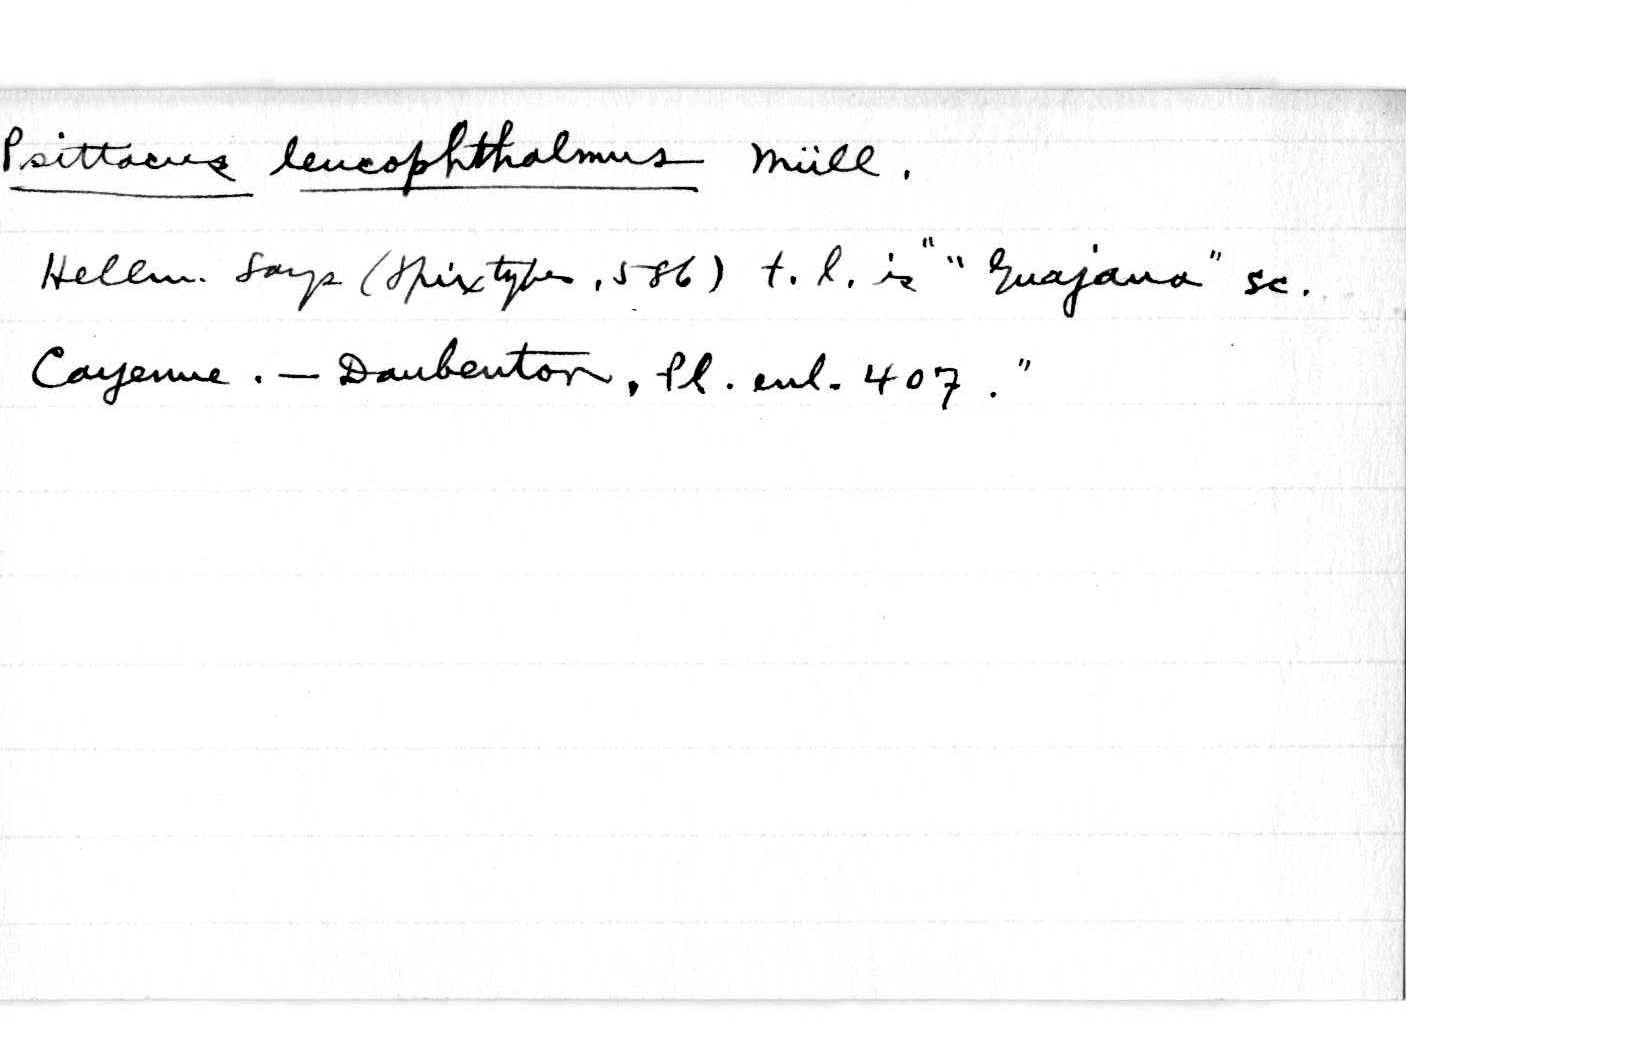 Psittacus leucophthalmus Müll.
Hellm. says (Spix types, 586) t. l. is " "Guajana" sc.
Cayenne. — Daubenton, Pl. enl. 407."